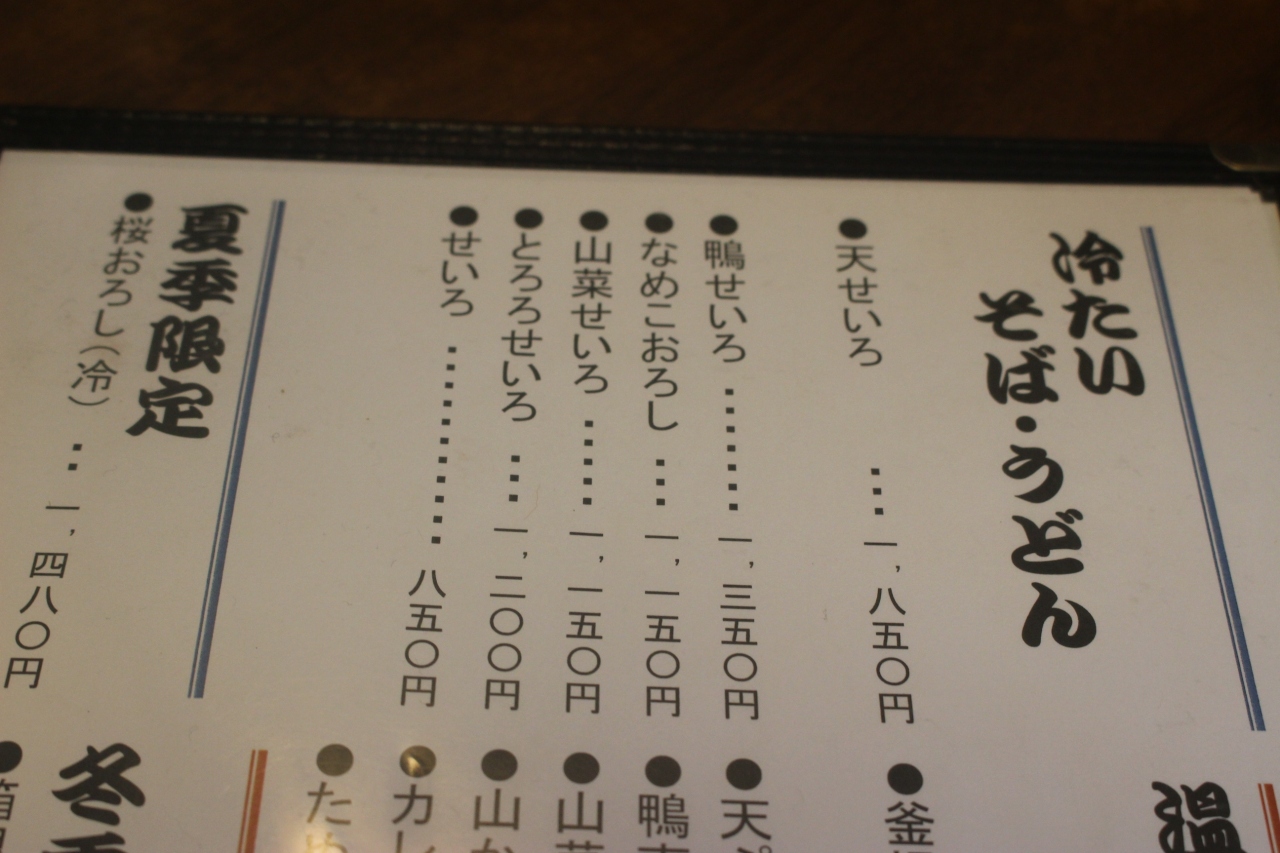 冷たい
そば・うどん
●天せいろ ・・・一,八五〇円
●鴨せいろ ・・・・・・・一,三五〇円
●なめこおろし ・・・一,一五〇円
●山菜せいろ ・・・・・一,一五〇円
●とろろせいろ ・・・一,二〇〇円
●せいろ ・・・・・・・・・・・八五〇円
夏季限定
●桜おろし(冷) ・・一,四八〇円
温
●釜
●天ぷ
●鴨
●山菜
●山か
●カレ
●た
冬季